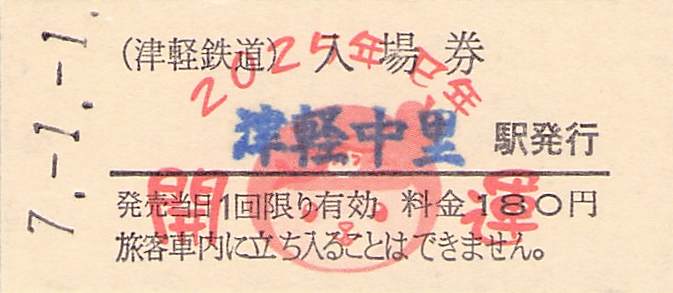 7.-1.-1.
(津軽鉄道) 入場券
2025年巳年
津軽中里 駅発行
開運
発売当日1回限り有効 料金180円
旅客車内に立ち入ることはできません。